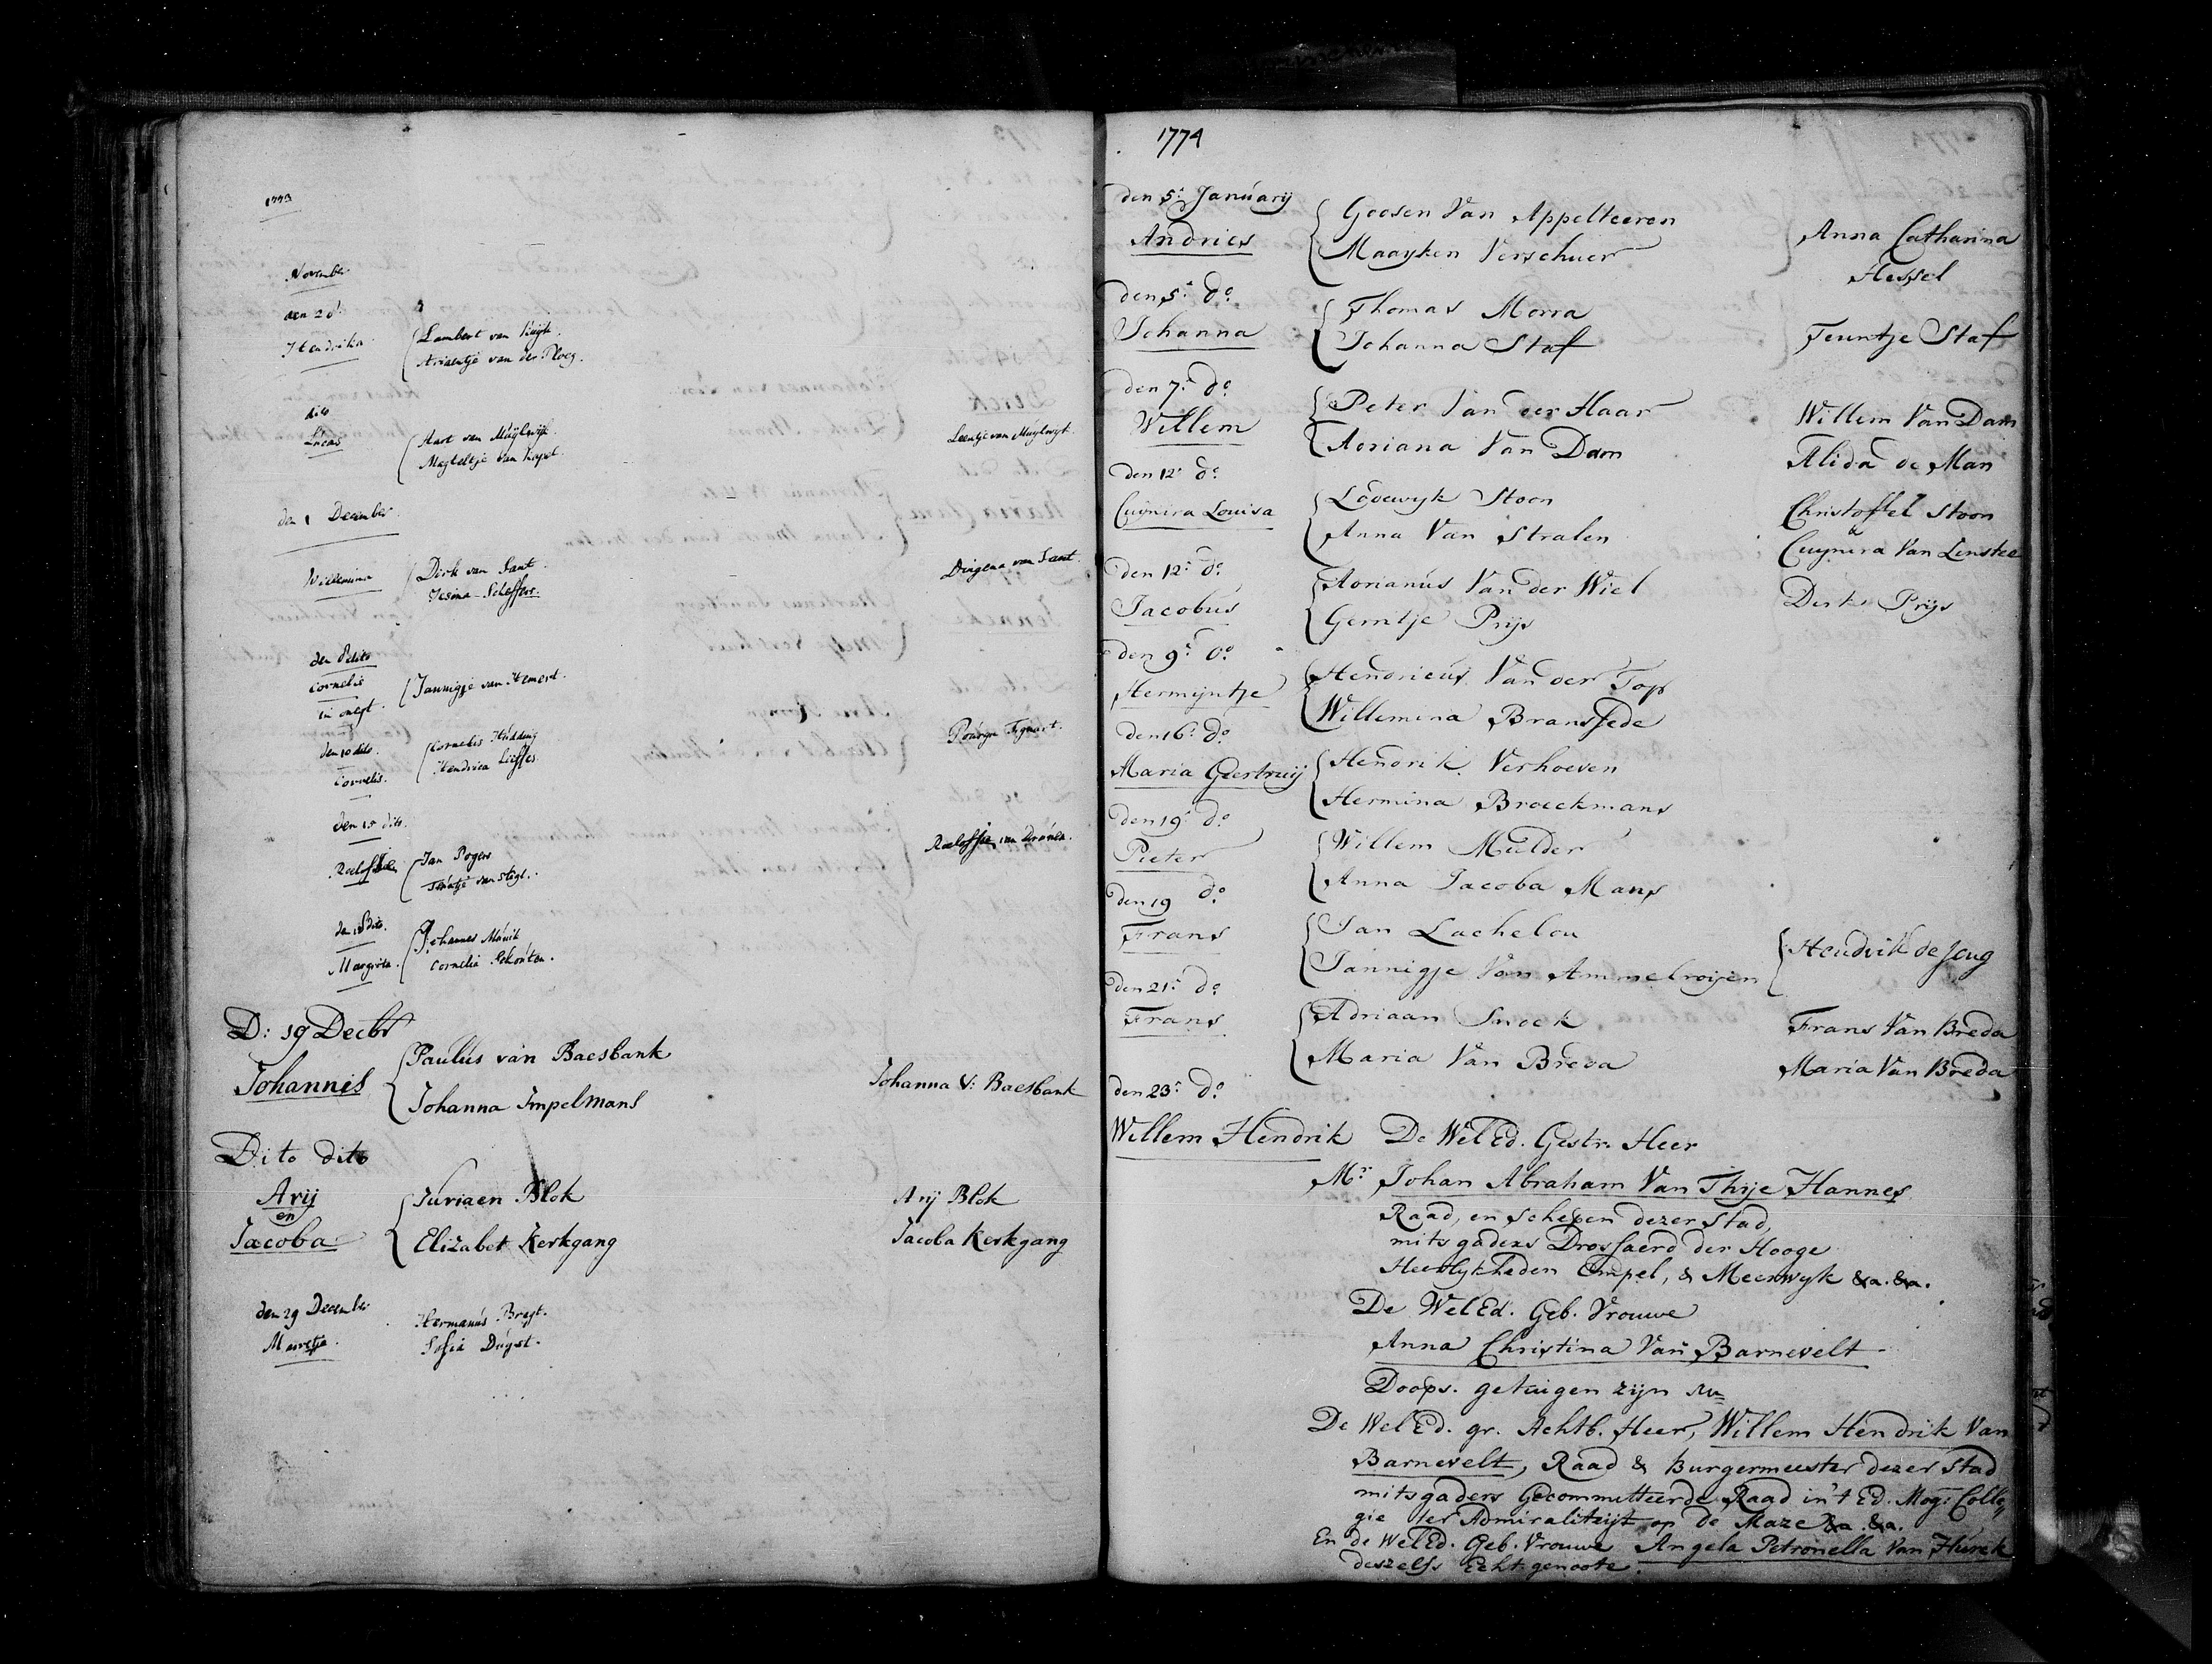 1773
November
den 28
Hendrika
Lambert van Kuyk.
Ariaentje van der Ploeg.
dito
Lucas
Aart van Muylwijk.
Magteltje van Kapel.
Leentje van Muylwyk.
den 1 December
Willemina
Dirk van Sant.
Jesina Scheffers.
Dingena van Sant.
den dito
Cornelis
in onegt.
Jannigje van Hemert.
den 10 dito.
Cornelis.
Cornelis Hidding
Hendrica Lieffes
den 15 dito.
Roeloffje
Jan Pogers
Roeloffje van Drunen.
den 18 dito.
Margrita.
Johannes
Cornelia
D: 19 Decbr
Johannis
Paulus van Baesbank
Johanna Impelmans
Johanna V: Baesbank
Dito dito
Arij
en
Jacoba
Juriaen Blok
Elizabet Kerkgang
Arij Blok
Jacoba Kerkgang
den 29 December
Hermanus Bragt.
Sofia
1774
den 5e January
Andries
Goosen Van Appelteeren
Maayken Verschuer
Anna Catharina
Hessel
den 5e do
Johanna
Thomas Morra
Johanna Staf
Teuntje Staf
den 7e do
Willem
Peter Van der Haar
Adriana Van Dam
Willem Van Dam
Alida de Man
den 12e do
Cuynira Louisa
Lodewyk Stoon
Anna Van Stralen
Christoffel Stoon
&
Cuynira Van Linstee
den 12e do
Jacobus
Adrianus Van der Wiel
Gerritje Prijs
Dirk Prijs
den 9e do
Hermijntje
Hendricus Van der Top
Willemina Bransfede
den 16e do
Maria Geertruij
Hendrik Verhoeven
Hermina Broeckmans
den 19e do
Pieter
Willem Mulder
Anna Jacoba Mans
den 19 do
Frans
Jan Lachelou
Jannigje Van Ammelroijen
Hendrik de Jong
den 21e do
Frans
Adriaan Snoek
Maria Van Breda
Frans Van Breda
Maria Van Breda
den 23e do
Willem Hendrik De Wel Ed. Gestr. Heer
Mr Johan Abraham Van Thije Hannes
Raad, en Schepen dezer Stad,
mitsgaders Drossaerd der Hooge
Heerlykheden Empel, & Meerwyk &a. &a.
De Wel Ed. Geb. Vrouwe
Anna Christina Van Barnevelt
Doops. getuigen zijn
De Wel Ed. gr. Achtb. Heer, Willem Hendrik Van
Barnevelt, Raad & Burgermeester dezer Stad
mitsgaders Gecommitteerde Raad in't Ed. Mog: Colle
gie ter Admiraliteijt op de Maze &a. &a.
En de Wel Ed. Geb. Vrouwe Angela Petronella Van Hurck
deszelfs Echtgenoote.